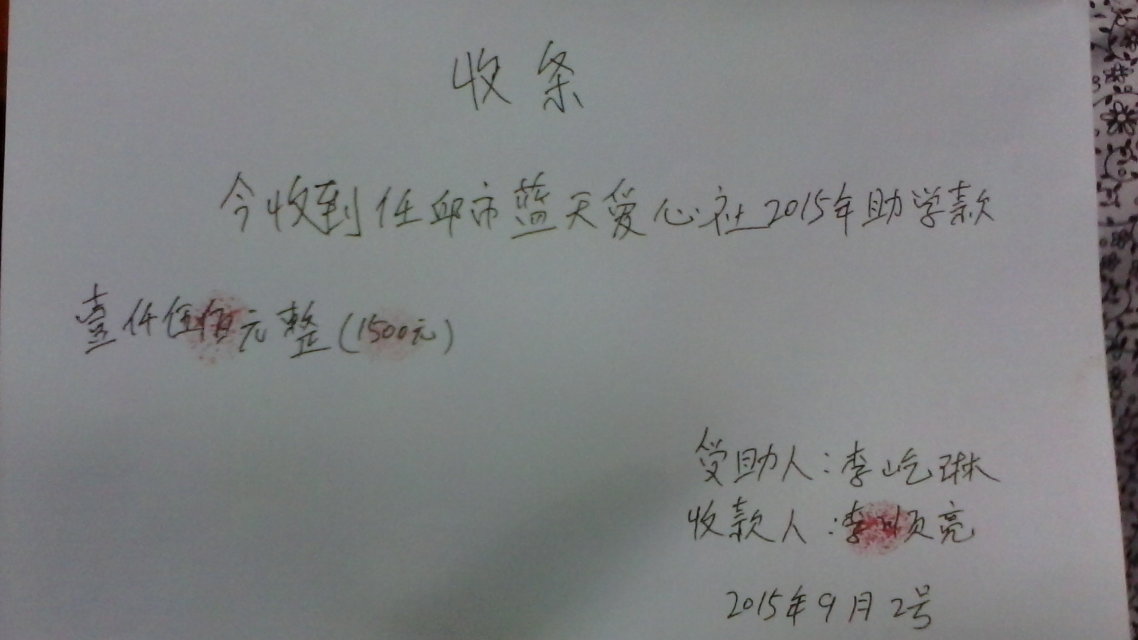 收条
今收到任邱市蓝天爱心社2015年助学款
壹仟伍佰元整(1500元)
受助人:李屹琳
收款人:李顺亮
2015年9月2号